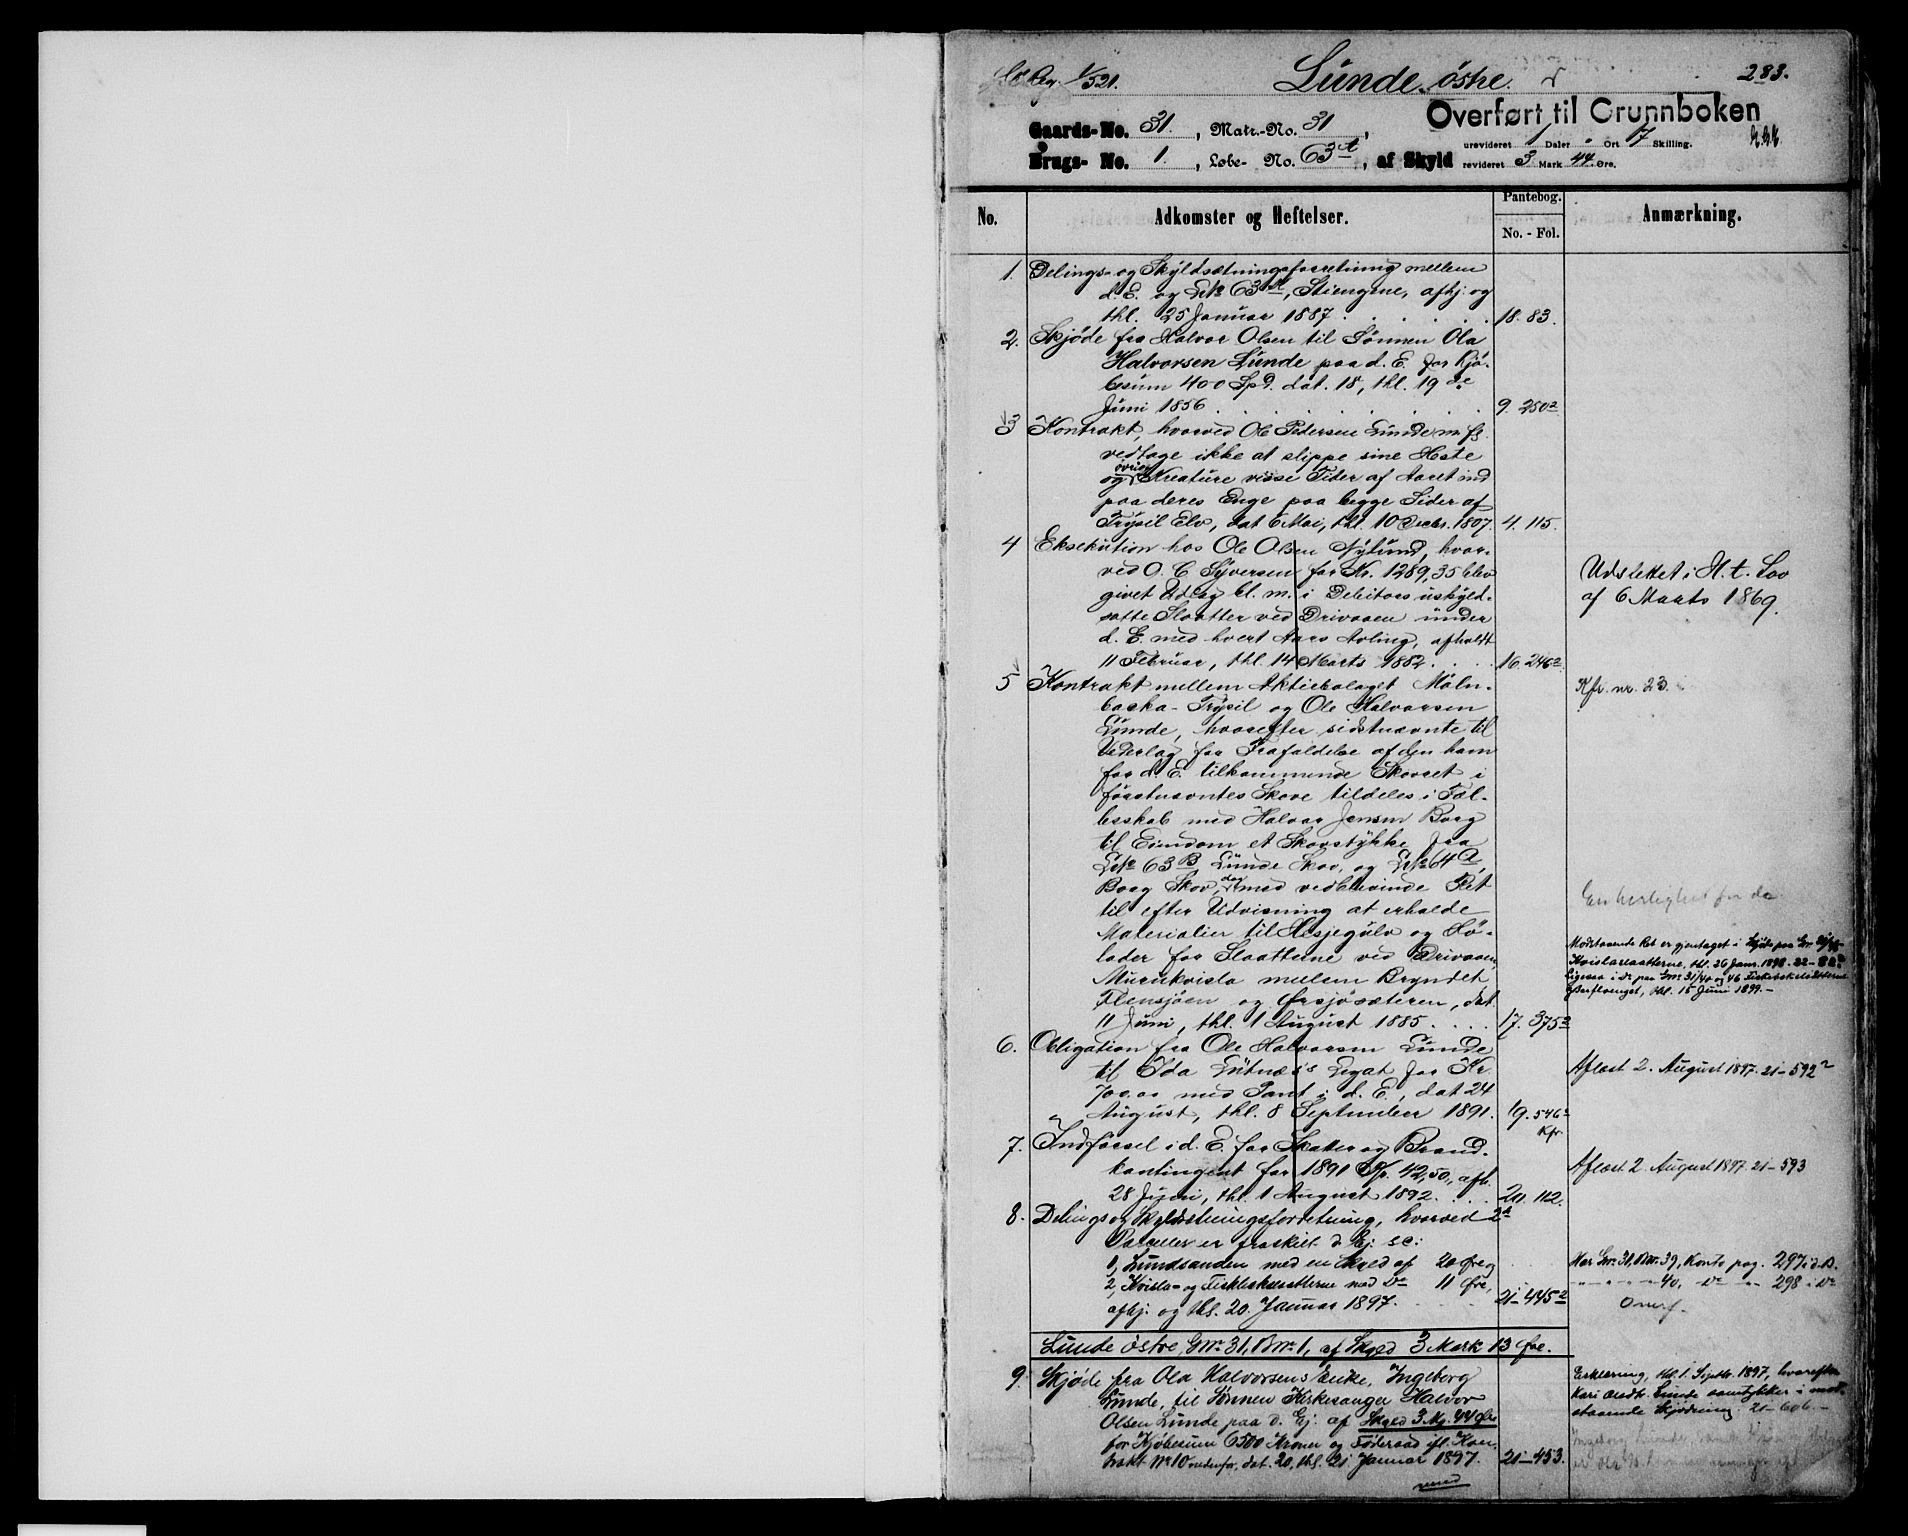 Reg. 1/521. Lunde østre. 283.
Overført til Grunnboken
Gaards-No. 31., Matr.-No. 31,
urevideret 1 Daler " Ort 17 Skilling.
Brugs- No. 1., Løbe- No. 63 A, af Skyld revideret 3 Mark 44 Øre.
No. Adkomster og Heftelser. Pantebog. No. - Fol. Anmærkning.
1. Delings- og Skyldsætningsforretning mellem
d. E. og LNo 63, Stiengene, afhj. og
thl. 25 Januar 1887 . . . . . 18. 83.
2. Skjøde fra Halvor Olsen til Sønnen Ola
Halvorsen Lunde paa d. E. for Kjø-
besum 400 Spd. dat. 18, thl. 19de
Juni 1856 . . . . . . . 9. 250²
3 Kontrakt, hvorved Ole Pedersen Lunde m. fl.
vedtage ikke at slippe sine Heste
og øvrige Kreature visse Tider af Aaret ind
paa deres Enge paa begge Sider af
Trysil Elv, dat 6 Mai, thl. 10 Decbr. 1807. 4. 115.
4 Eksekution hos Ole Olsen Nylund, hvor-
ved O. C. Syversen for Kr. 1289,35 blev
givet Udlæg bl. m. i Debitors uskyld-
satte Slaatter ved Drivaaen under
d. E. med hvert Aars Avling, afholdt
11 Februar, thl. 14 Marts 1882 . . . 16. 246²
Udslettet i H. t. Lov
af 6 Marts 1869.
5 Kontrakt mellem Aktiebolaget Møln-
backa-Trysil og Ole Halvorsen
Lunde, hvorefter sidstnævnte til
Vederlag for Frafaldelse af den ham
for d. E. tilkommende Skovret i
førstnævntes Skove tildeles i Fæl-
lesskab med Halvor Jensen Borg
til Eiendom et Skovstykke fra
LNo 63 B Lunde Skov, og LNo 64 a,
Borg Skov, dog med vedblivende Ret
til efter Udvisning at erholde
Materialier til Hesjegulv og Hø-
lader for Slaatterne ved Drivaaen,
Murukvisla mellem Bryndet
Flensjøen og Ørsjøsæteren, dat.
11 Juni, thl. 1 August 1885 . . . . 17. 375²
Kfr. nr. 23.
En herlighet for de
Modstaaende Ret er gjentaget i Skjøde paa Gnr. 31/40
Kvislaslaatterne, thl. 26 Janr. 1898 - 22 -
Ligesaa i do. paa Gnr. 31/40 og 46 Fiskebækslaatterne
thl. 15 Juni 1899. -
6. Obligation fra Ole Halvorsen Lunde
til Ida Lutnæs's Legat for Kr.
700.00 med Pant i d. E., dat 24
August, thl. 8 September 1891. 19. 546²
Kfr.
Aflæst 2. August 1897. 21-592²
7. Indførsel i d. E. for Skatter og Brand-
kontingent for 1891 Kr. 42,50, afh.
28 Juni, thl. 1 August 1892. . . . 20. 112.
Aflæst 2. August 1897. 21-593
8. Delings og Skyldsætningsforretning, hvorved 2de
Parceller er fraskilt d. Ej. sc:
1, Lundsanden med en Skyld af 20 Øre og
2, Kvisla- og Fiskebækslaatterne med Do 11 Øre,
afhj. og thl. 20. Januar 1897. . . . 21-445²
Har Gnr. 31, Bnr. 39, Konto pag. 297 i d. B.
" " " " 40, do " 298 i do
Overf.
Lunde østre, Gnr. 31, Bnr. 1, af Skyld 3 Mark 13 Øre.
9. Skjøde fra Ola Halvorsens Enke, Ingeborg
Lunde, til Sønnen Kirkesanger Halvor
Olsen Lunde paa d. Ej. af Skyld 3 Mk. 44 Øre
for Kjøbesum 6500 Kroner og Føderaad ifl. Kon-
trakt No 10 nedenfor, dat. 20, thl. 21 Januar 1897. 21-453.
vend
Erklæring, thl. 1. Septbr. 1897, hvorefter
Kari Lunde samtykker i mod-
staaende Skjødning 21-606-
Ingeborg Lunde